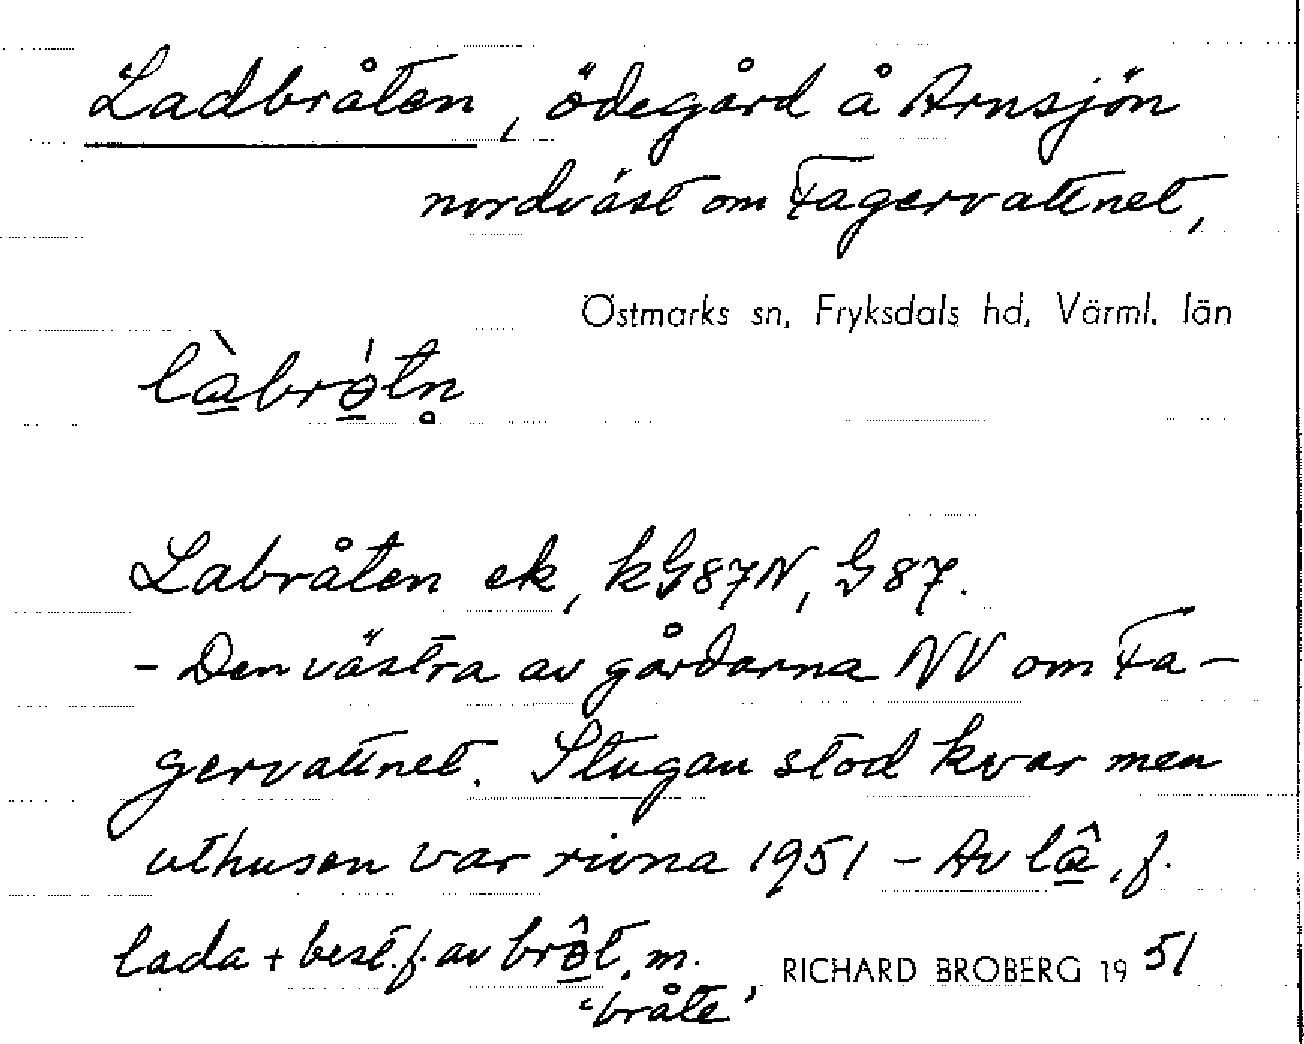 Ladbråten, ödegård å Arnsjön
nordväst om Fagervattnet,
Östmarks sn, Fryksdals hd, Värml. län
là̱brò̱tn̥
Labråten ek, kG87N, G87.
- Den västra av gårdarna NV om Fa-
gervattnet. Stugan stod kvar men
uthusen var rivna 1951 - Av lâ̱, f.
lada + best. f. av brô̱t, m.
'bråte'
RICHARD BROBERG 1951